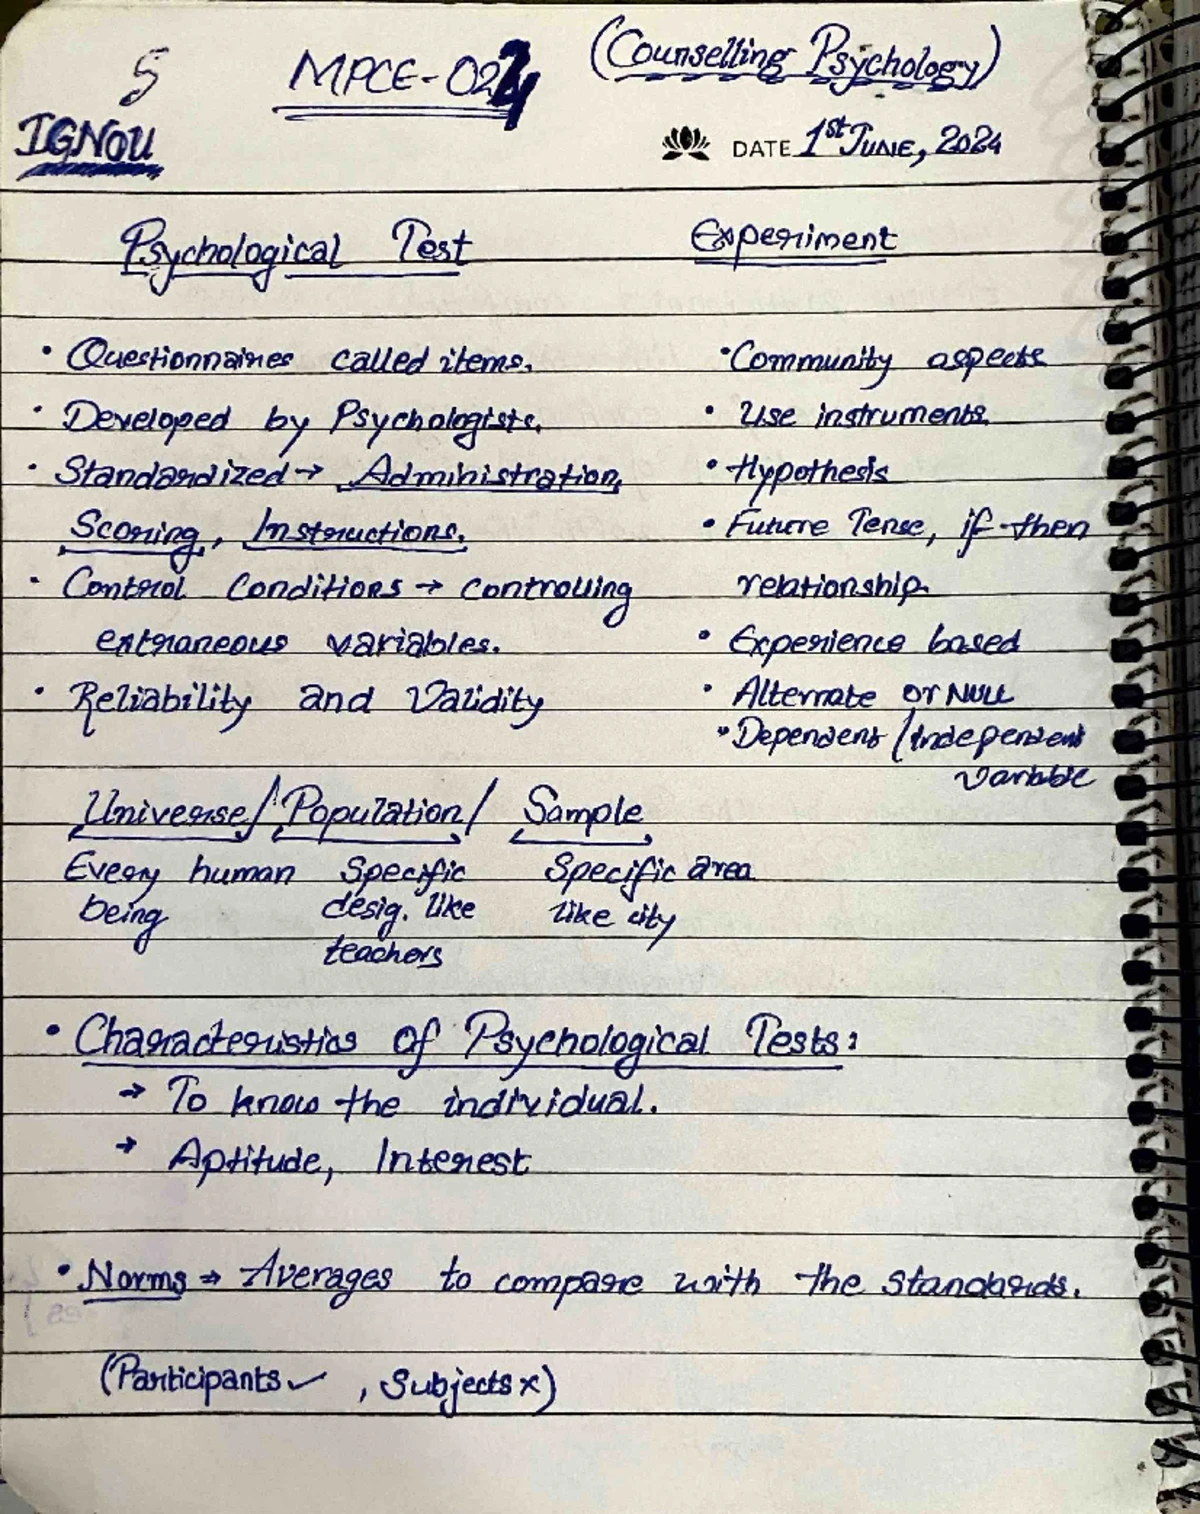 5
MPCE-024
(Counselling Psychology)
IGNOU
DATE 1st JUNE, 2024
Psychological Test
Experiment
• Questionnaires called items.
• Developed by Psychologists.
• Standardized → Administration,
Scoring, Instructions.
• Control Conditions → controlling
extraneous variables.
• Reliability and Validity
• Community aspects
• Use instruments.
• Hypothesis
• Future Tense, if-then
relationship.
• Experience based
• Alternate or NULL
• Dependent/independent
variable
Universe/ Population/ Sample
Every human Specific Specific area
being desig. like like city
teachers
• Characteristics of Psychological Tests:
→ To know the individual.
→ Aptitude, Interest
• Norms ⇒ Averages to compare with the standards.
(Participants ✓, Subjects x)